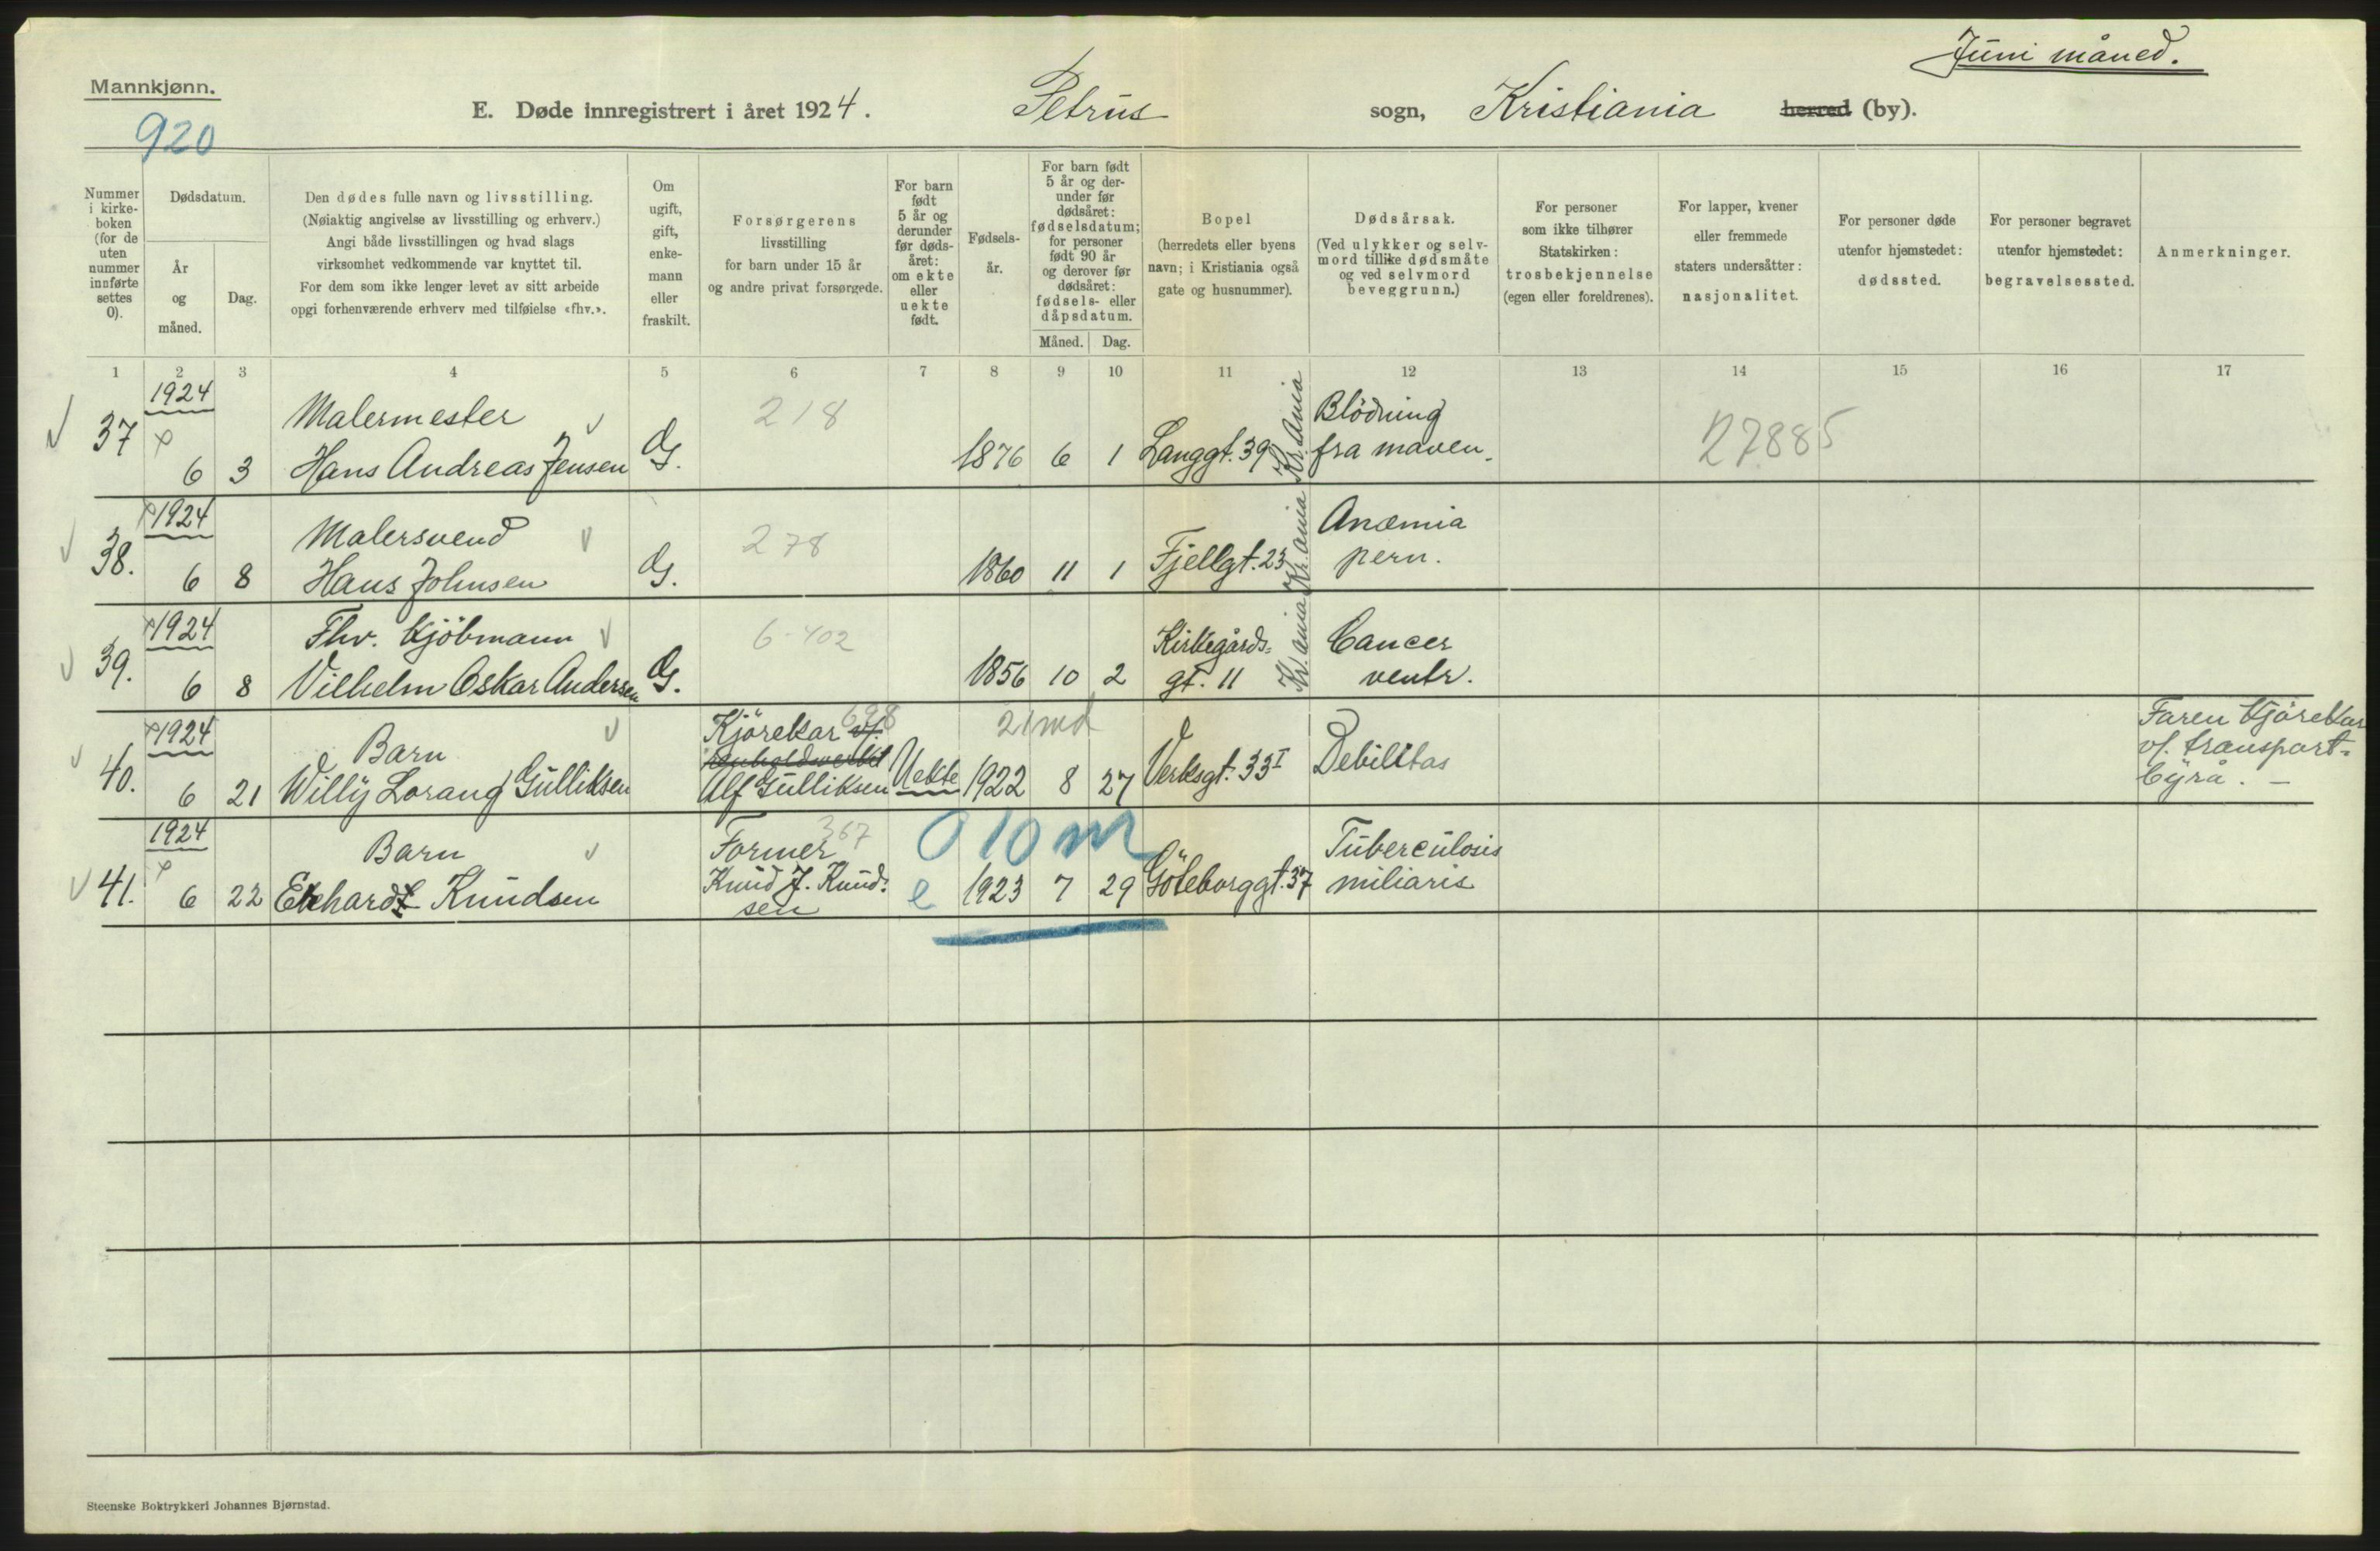 Juni måned.
Mannkjønn.
920
E. Døde innregistrert i året 1924.
Petrus sogn, Kristiania herred (by).
Nummer i kirke- boken (for de uten nummer innførte settes 0).
Dødsdatum.
År og måned.
Dag.
Den dødes fulle navn og livsstilling.
(Nøiaktig angivelse av livsstilling og erhverv.)
Angi både livsstillingen og hvad slags
virksomhet vedkommende var knyttet til.
For dem som ikke lenger levet av sitt arbeide
opgi forhenværende erhverv med tilføielse «fhv.».
Om ugift, gift, enke- mann eller fraskilt.
Forsørgerens
livsstilling
for barn under 15 år
og andre privat forsørgede.
For barn født 5 år og derunder før døds- året: om ekte eller uekte født.
Fødsels- år.
For barn født 5 år og der- under før dødsåret: fødselsdatum; for personer født 90 år og derover før dødsåret: fødsels- eller dåpsdatum.
Måned. Dag.
Bopel
(herredets eller byens
navn; i Kristiania også
gate og husnummer).
Dødsårsak.
(Ved ulykker og selv-
mord tillike dødsmåte
og ved selvmord
beveggrunn.)
For personer
som ikke tilhører
Statskirken:
trosbekjennelse
(egen eller foreldrenes).
For lapper, kvener
eller fremmede
staters undersåtter:
nasjonalitet.
For personer døde
utenfor hjemstedet:
dødssted.
For personer begravet
utenfor hjemstedet:
begravelsessted.
Anmerkninger.
1 2 3 4 5 6 7 8 9 10 11 12 13 14 15 16 17
1924 Malermester 218 Blödning
37 6 3 Hans Andreas Jensen G. 1876 6 1 Langgt. 39 Kr.ania fra maven. 27885
1924 Malersvend 278 Anæmia
38. 6 8 Hans Johnsen G. 1860 11 1 Fjellgt. 23 Kr.ania pern.
1924 Fhv. kjöbmann 6-402 Kirkegårds- Cancer
39. 6 8 Vilhelm Oskar Andersen G. 1856 10 2 gt. 11 Kr.ania ventr.
1924 Barn Kjörekar v/. 698 21 md Faren kjörekar
renholdsverket v/. transport-
40. 6 21 Willÿ Lorang Gulliksen Alf Gulliksen Uekte 1922 8 27 Verksgt. 33I Debilitas bÿrå. —
1924 Barn Former 367 0 10 m Tuberculosis
41. 6 22 Ekhardt Knudsen Knud J. Knud- e 1923 7 29 Göteborggt. 37 miliaris
sen
Steenske Boktrykkeri Johannes Bjørnstad.